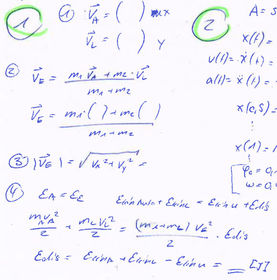 1
① V⃗A = ( ) x
V⃗L = ( ) y
② V⃗E = m1 V⃗A + m2 · V⃗L / m1 + m2
V⃗E = m1 ( ) + m2 ( ) / m1 + m2
③ |V⃗E| = √Vx² + Vy² =
④ EA = EE
Ekin A + Ekin L = Ekin E + Edis
m1 VA² / 2 + m2 VL² / 2 = (m1 + m2) VE² / 2 · Edis
Edis = Ekin A + Ekin L − Ekin E = __ [J]
2
A = S
x(t) =
v(t) = ẋ(t) =
a(t) = ẍ(t) =
x(0,5)
x(1) = 1
φ0 = 0,
ω = 0,